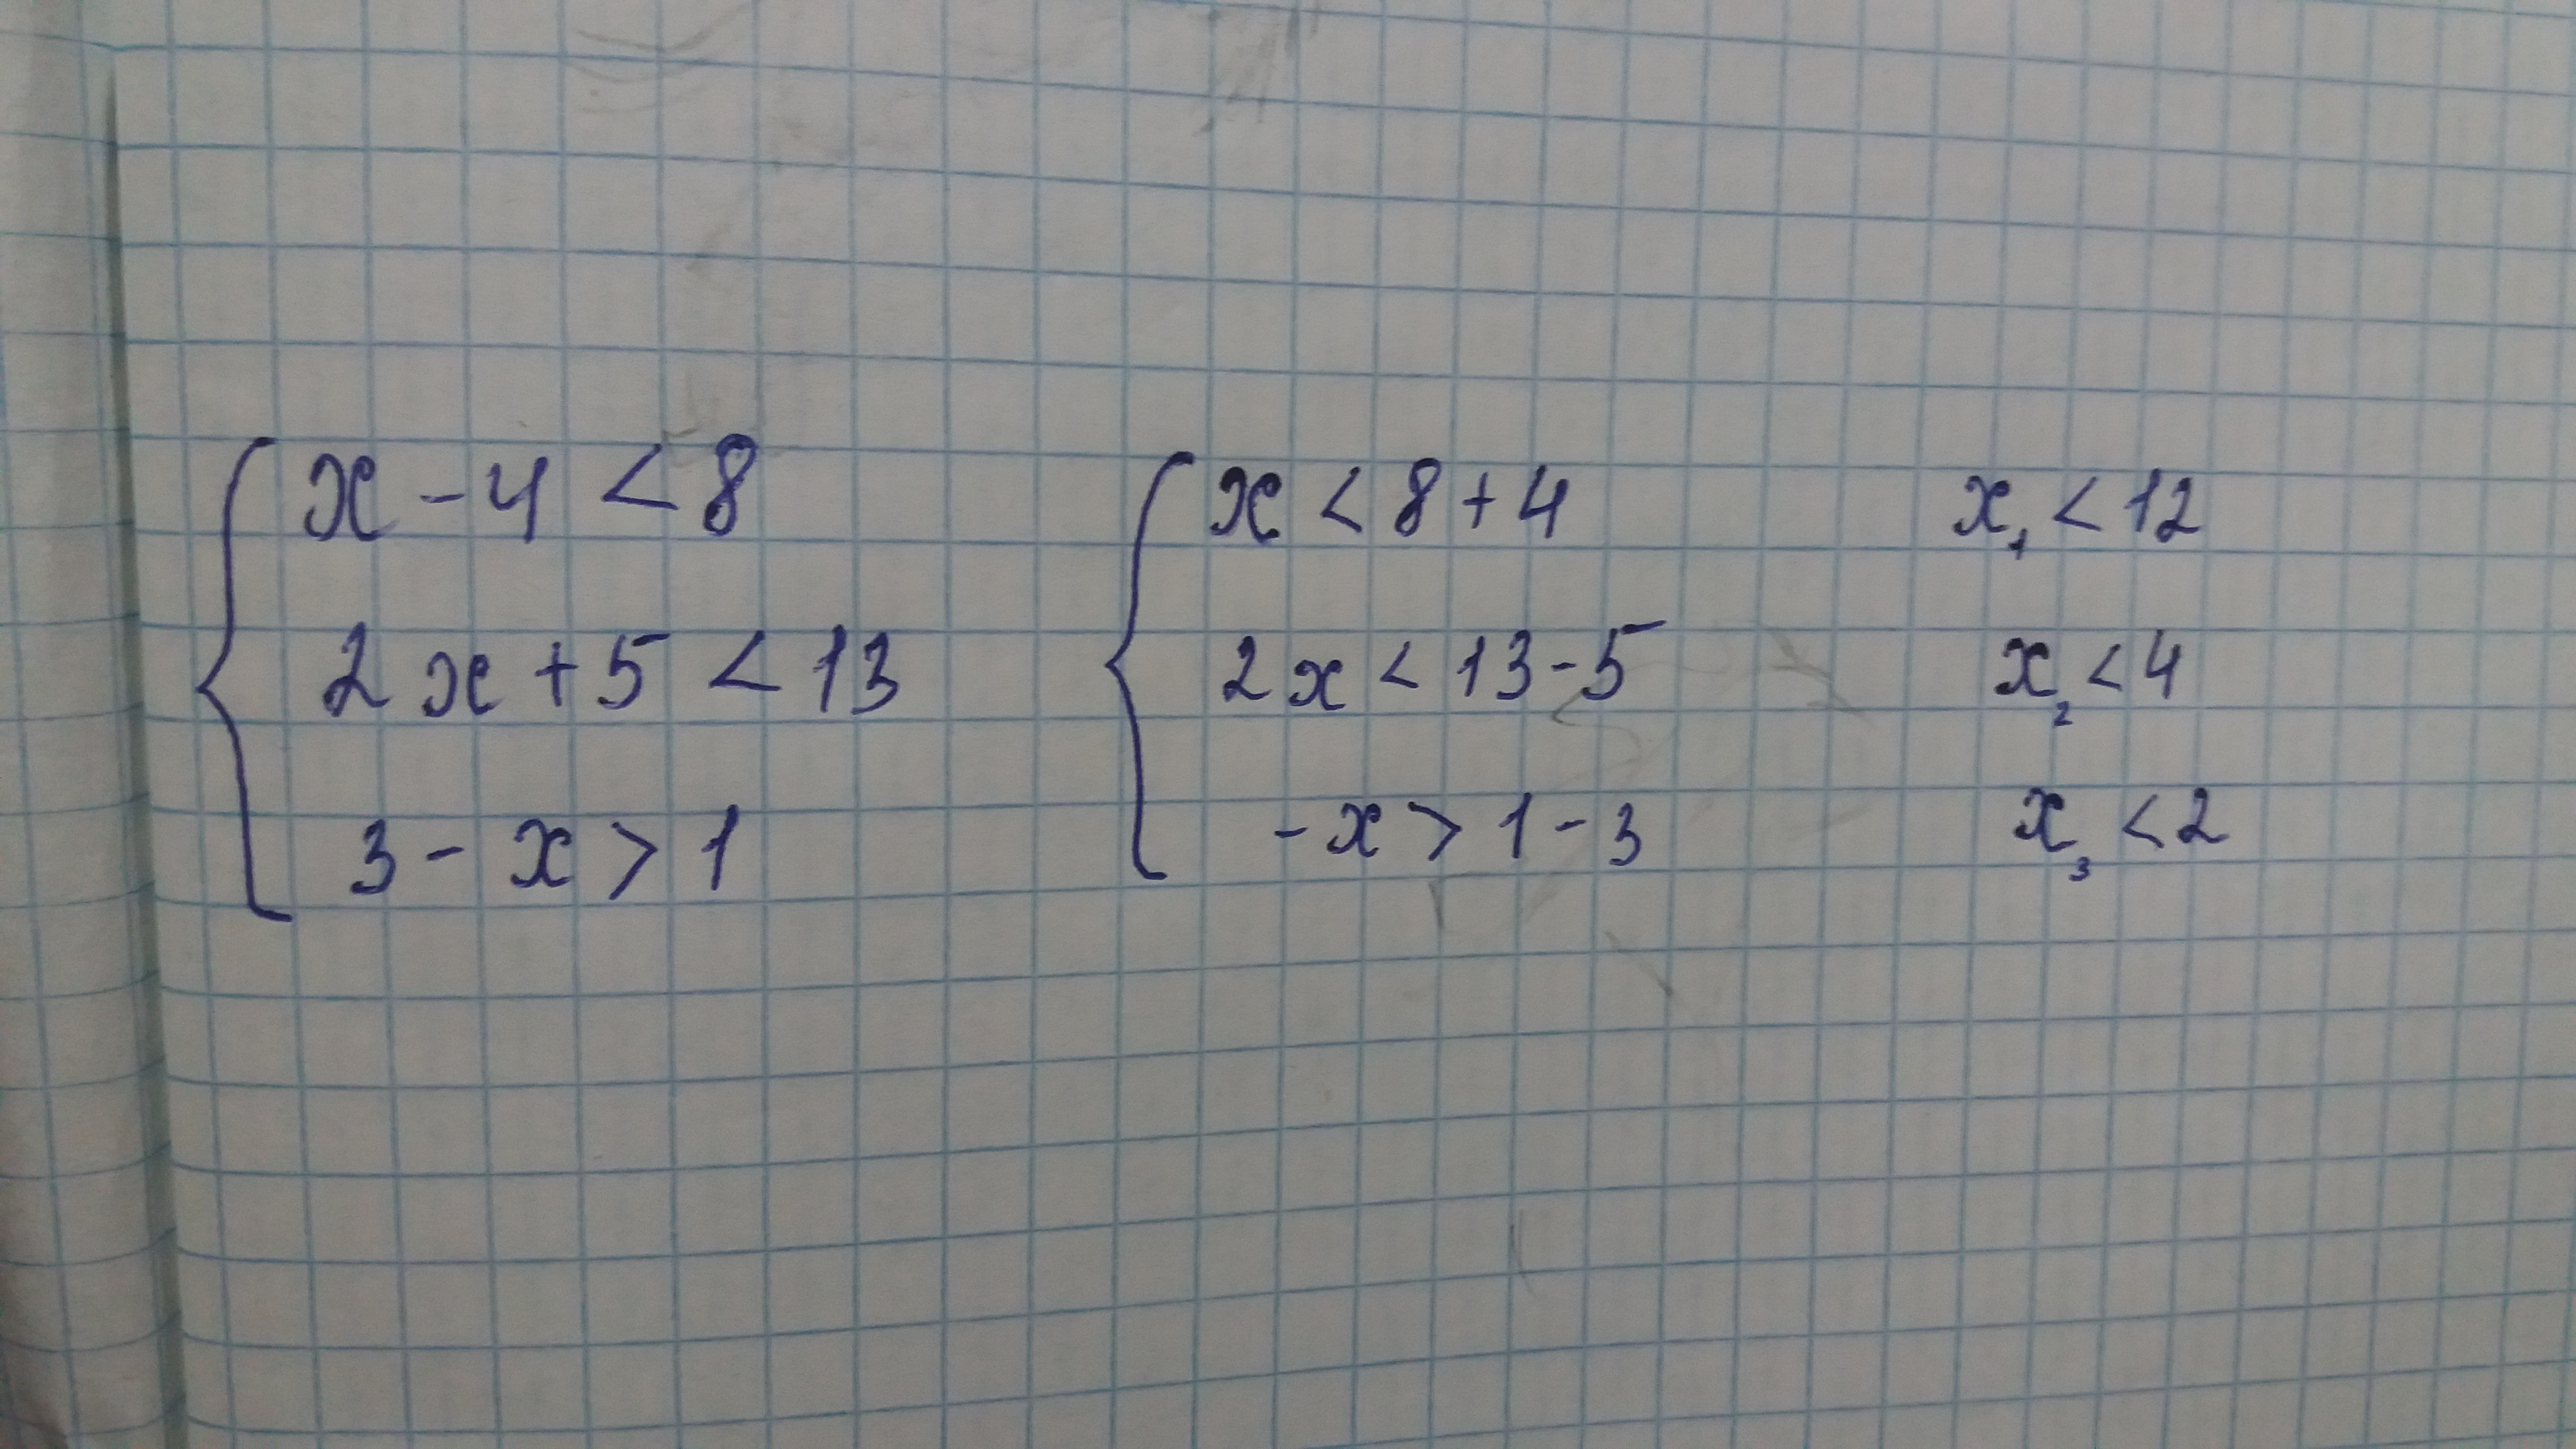 x - 4 < 8
2x + 5 < 13
3 - x > 1
x < 8 + 4
2x < 13 - 5
-x > 1 - 3
x₁ < 12
x₂ < 4
x₃ < 2